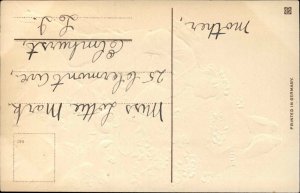 Mother,
Miss Lottie Mark
25 Clermont Ave,
Elmhurst,
L. I.
PRINTED IN GERMANY.